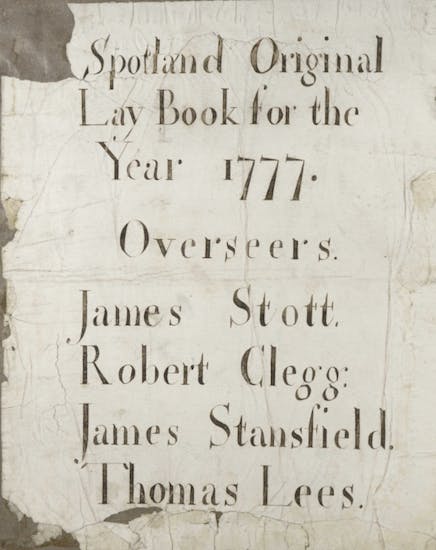 Spotland Original
Lay Book for the
Year 1777.
Overseers.
James Stott.
Robert Clegg:
James Stansfield.
Thomas Lees.